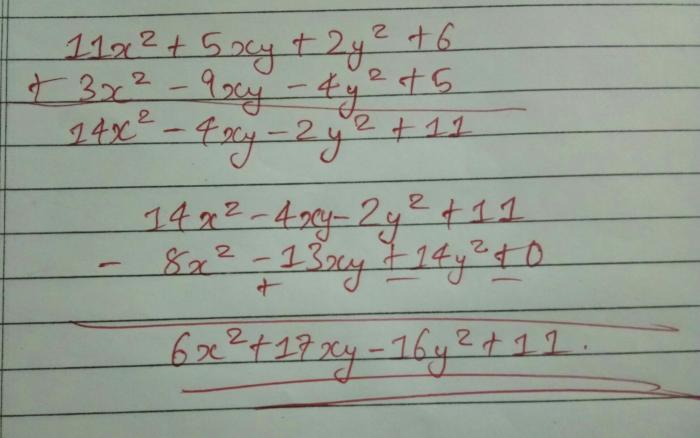 11x² + 5xy + 2y² + 6
+ 3x² - 9xy - 4y² + 5
14x² - 4xy - 2y² + 11
14x² - 4xy - 2y² + 11
- 8x² - 13xy + 14y² + 0
+ - -
6x² + 17xy - 16y² + 11.